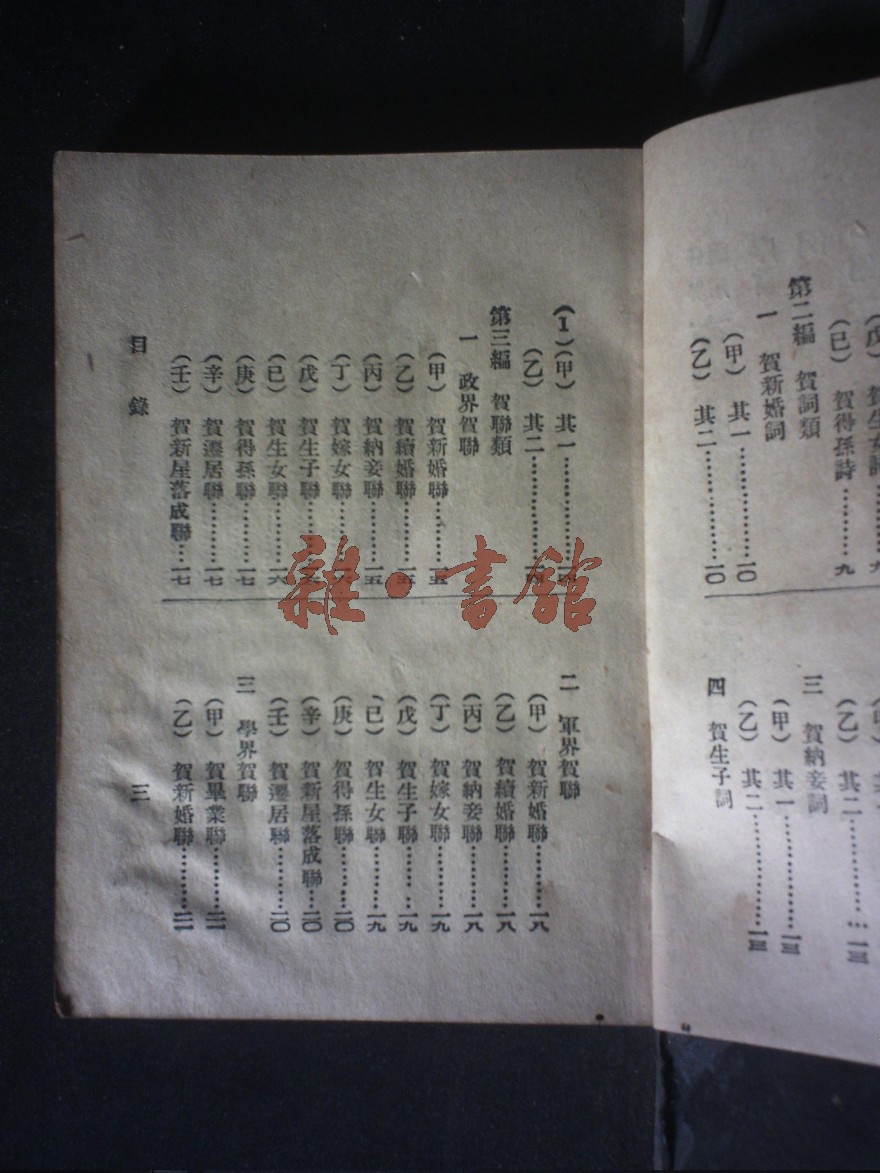 賀生女詩
(已) 賀得孫詩………九
第二編 賀詞類
一 賀新婚詞
(甲) 其一………一〇
(乙) 其二………一〇
(乙) 其二………一三
三 賀納妾詞
(甲) 其一………一三
(乙) 其二………一三
四 賀生子詞
(1)(甲) 其一………一四
(乙) 其二………一四
第三編 賀聯類
一 政界賀聯
(甲) 賀新婚聯………一五
(乙) 賀續婚聯………一五
(丙) 賀納妾聯………一五
(丁) 賀嫁女聯………一六
(戊) 賀生子聯………
(已) 賀生女聯………一六
(庚) 賀得孫聯………一七
(辛) 賀遷居聯………一七
(壬) 賀新屋落成聯…一七
二 軍界賀聯
(甲) 賀新婚聯………一八
(乙) 賀續婚聯………一八
(丙) 賀納妾聯………一八
(丁) 賀嫁女聯………一九
(戊) 賀生子聯………一九
(已) 賀生女聯………一九
(庚) 賀得孫聯………二〇
(辛) 賀新屋落成聯…二〇
(壬) 賀遷居聯………二〇
三 學界賀聯
(甲) 賀畢業聯………二一
(乙) 賀新婚聯………二一
目錄
三
雜·書館